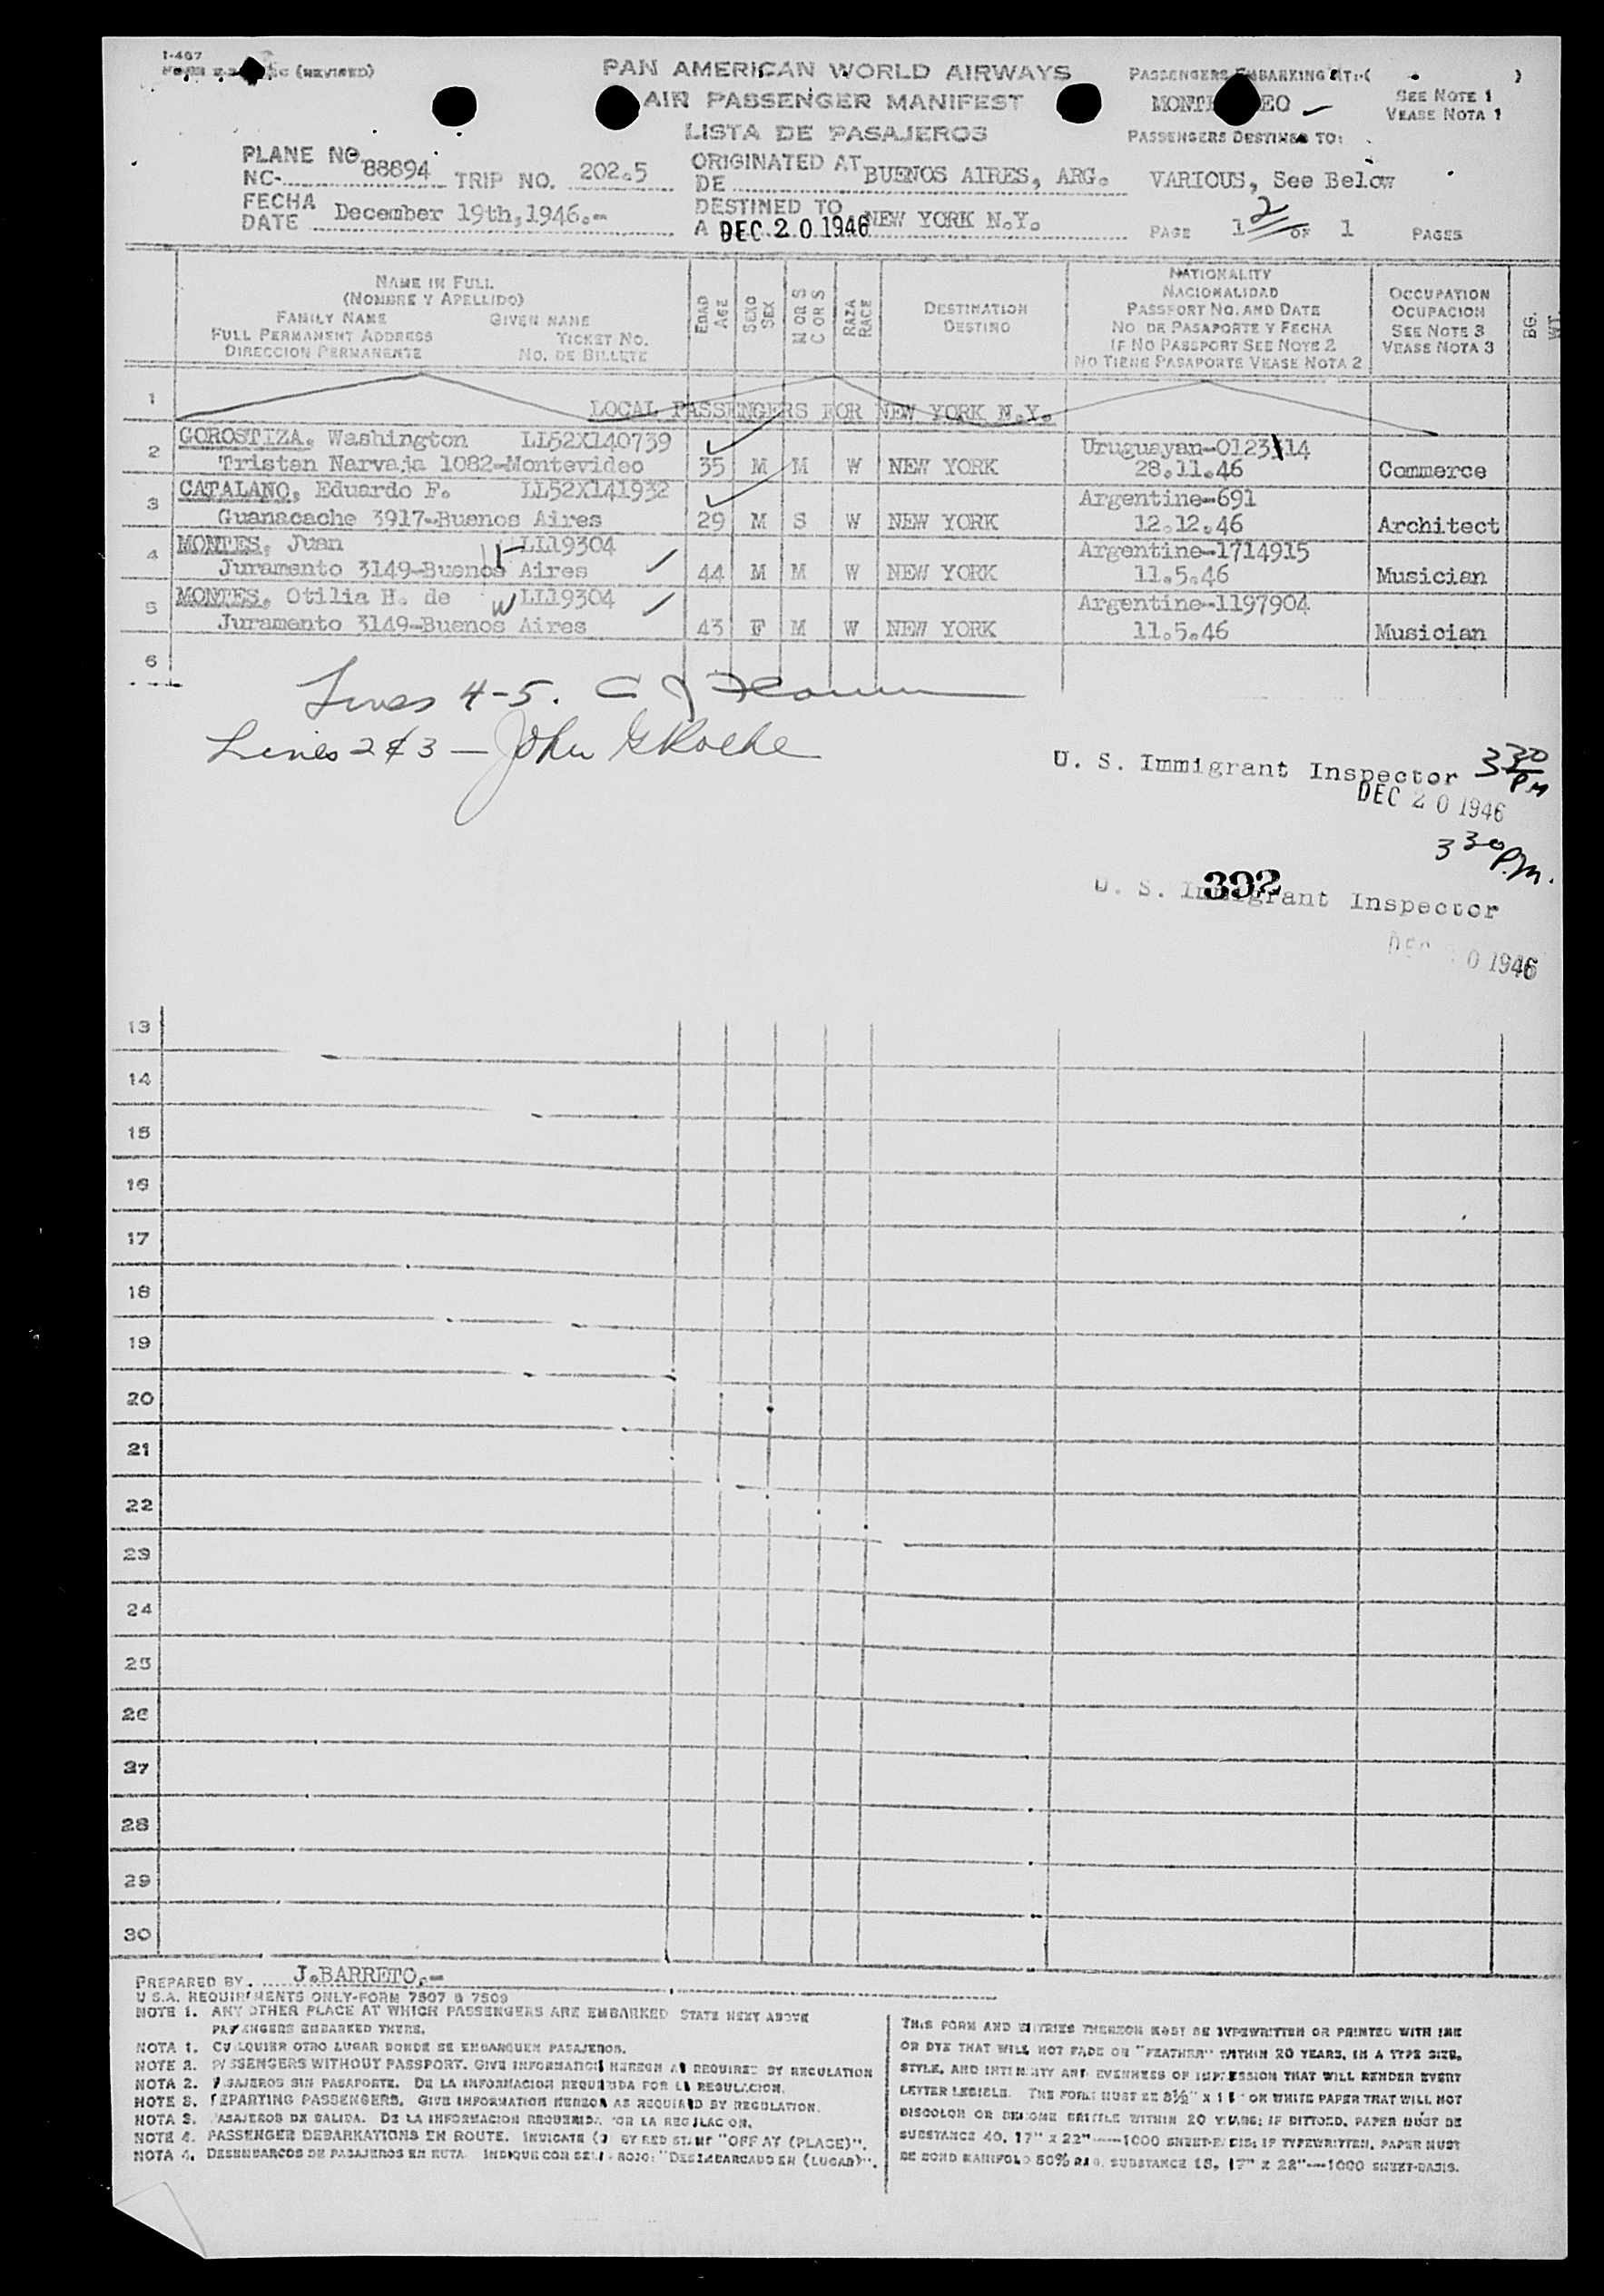 I-467
(REVISED)
PAN AMERICAN WORLD AIRWAYS
AIR PASSENGER MANIFEST
LISTA DE PASAJEROS
PASSENGERS EMBARKING AT:-( )
SEE NOTE 1
VEASE NOTA 1
PASSENGERS DESTINED TO:
VARIOUS, See Below
PLANE NO.
NC- 88894 TRIP NO. 202.5
ORIGINATED AT
DE BUENOS AIRES, ARG.
FECHA
DATE December 19th,1946.-
DESTINED TO
A DEC 20 1946 NEW YORK N.Y.
PAGE 1 2 OF 1 PAGES
NAME IN FULL
(NOMBRE Y APELLIDO)
FAMILY NAME GIVEN NAME
FULL PERMANENT ADDRESS TICKET NO.
DIRECCION PERMANENTE NO. DE BILLETE
EDAD
AGE
SEXO
SEX
M OR S
C OR S
RAZA
RACE
DESTINATION
DESTINO
NATIONALITY
NACIONALIDAD
PASSPORT NO. AND DATE
NO. DE PASAPORTE Y FECHA
IF NO PASSPORT SEE NOTE 2
NO TIENE PASAPORTE VEASE NOTA 2
OCCUPATION
OCUPACION
SEE NOTE 3
VEASE NOTA 3
BG.
WT.
1 LOCAL PASSENGERS FOR NEW YORK N.Y.
2 GOROSTIZA, Washington LL52X140739 Uruguayan-0123114
Tristan Narvaja 1082-Montevideo 35 M M W NEW YORK 28.11.46 Commerce
3 CATALANO, Eduardo F. LL52X141932 Argentine-691
Guanacache 3917-Buenos Aires 29 M S W NEW YORK 12.12.46 Architect
4 MONTES, Juan LL19304 Argentine-1714915
Juramento 3149-Buenos Aires 44 M M W NEW YORK 11.5.46 Musician
5 MONTES, Otilia H. de W LL19304 Argentine-1197904
Juramento 3149-Buenos Aires 43 F M W NEW YORK 11.5.46 Musician
6
Lines 4-5.
Lines 2 & 3 - John G Roche
U. S. Immigrant Inspector 3 30 PM
DEC 20 1946
3 30 P.M.
392
U. S. Immigrant Inspector
0 1946
13
14
15
16
17
18
19
20
21
22
23
24
25
26
27
28
29
30
PREPARED BY. J.BARRETO.-
U.S.A. REQUIREMENTS ONLY-FORM 7507 & 7509
NOTE 1. ANY OTHER PLACE AT WHICH PASSENGERS ARE EMBARKED STATE NEXT ABOVE
PASSENGERS EMBARKED THERE.
NOTA 1. CUALQUIER OTRO LUGAR DONDE SE EMBARQUEN PASAJEROS.
NOTE 2. PASSENGERS WITHOUT PASSPORT. GIVE INFORMATION HEREON AS REQUIRED BY REGULATION
NOTA 2. PASAJEROS SIN PASAPORTE. DE LA INFORMACION REQUERIDA POR LA REGULACION.
NOTE 3. DEPARTING PASSENGERS. GIVE INFORMATION HEREON AS REQUIRED BY REGULATION.
NOTA 3. PASAJEROS DE SALIDA. DE LA INFORMACION REQUERIDA POR LA REGULACION.
NOTE 4. PASSENGER DEBARKATIONS EN ROUTE. INDICATE () BY RED STAMP "OFF AT (PLACE)".
NOTA 4. DESEMBARCOS DE PASAJEROS EN RUTA. INDIQUE CON SELLO ROJO: "DESEMBARCADO EN (LUGAR)".
THIS FORM AND ENTRIES THEREON MUST BE TYPEWRITTEN OR PRINTED WITH INK
OR DYE THAT WILL NOT FADE OR "FEATHER" WITHIN 20 YEARS, IN A TYPE SIZE,
STYLE, AND INTENSITY AND EVENNESS OF IMPRESSION THAT WILL RENDER EVERY
LETTER LEGIBLE. THE FORM MUST BE 8½" X 11" ON WHITE PAPER THAT WILL NOT
DISCOLOR OR BECOME BRITTLE WITHIN 20 YEARS; IF DITTOED, PAPER MUST BE
SUBSTANCE 40, 17" X 22"-----1000 SHEET-BASIS; IF TYPEWRITTEN, PAPER MUST
BE BOND MANIFOLD 50% RAG, SUBSTANCE 18, 17" X 22"----1000 SHEET-BASIS.